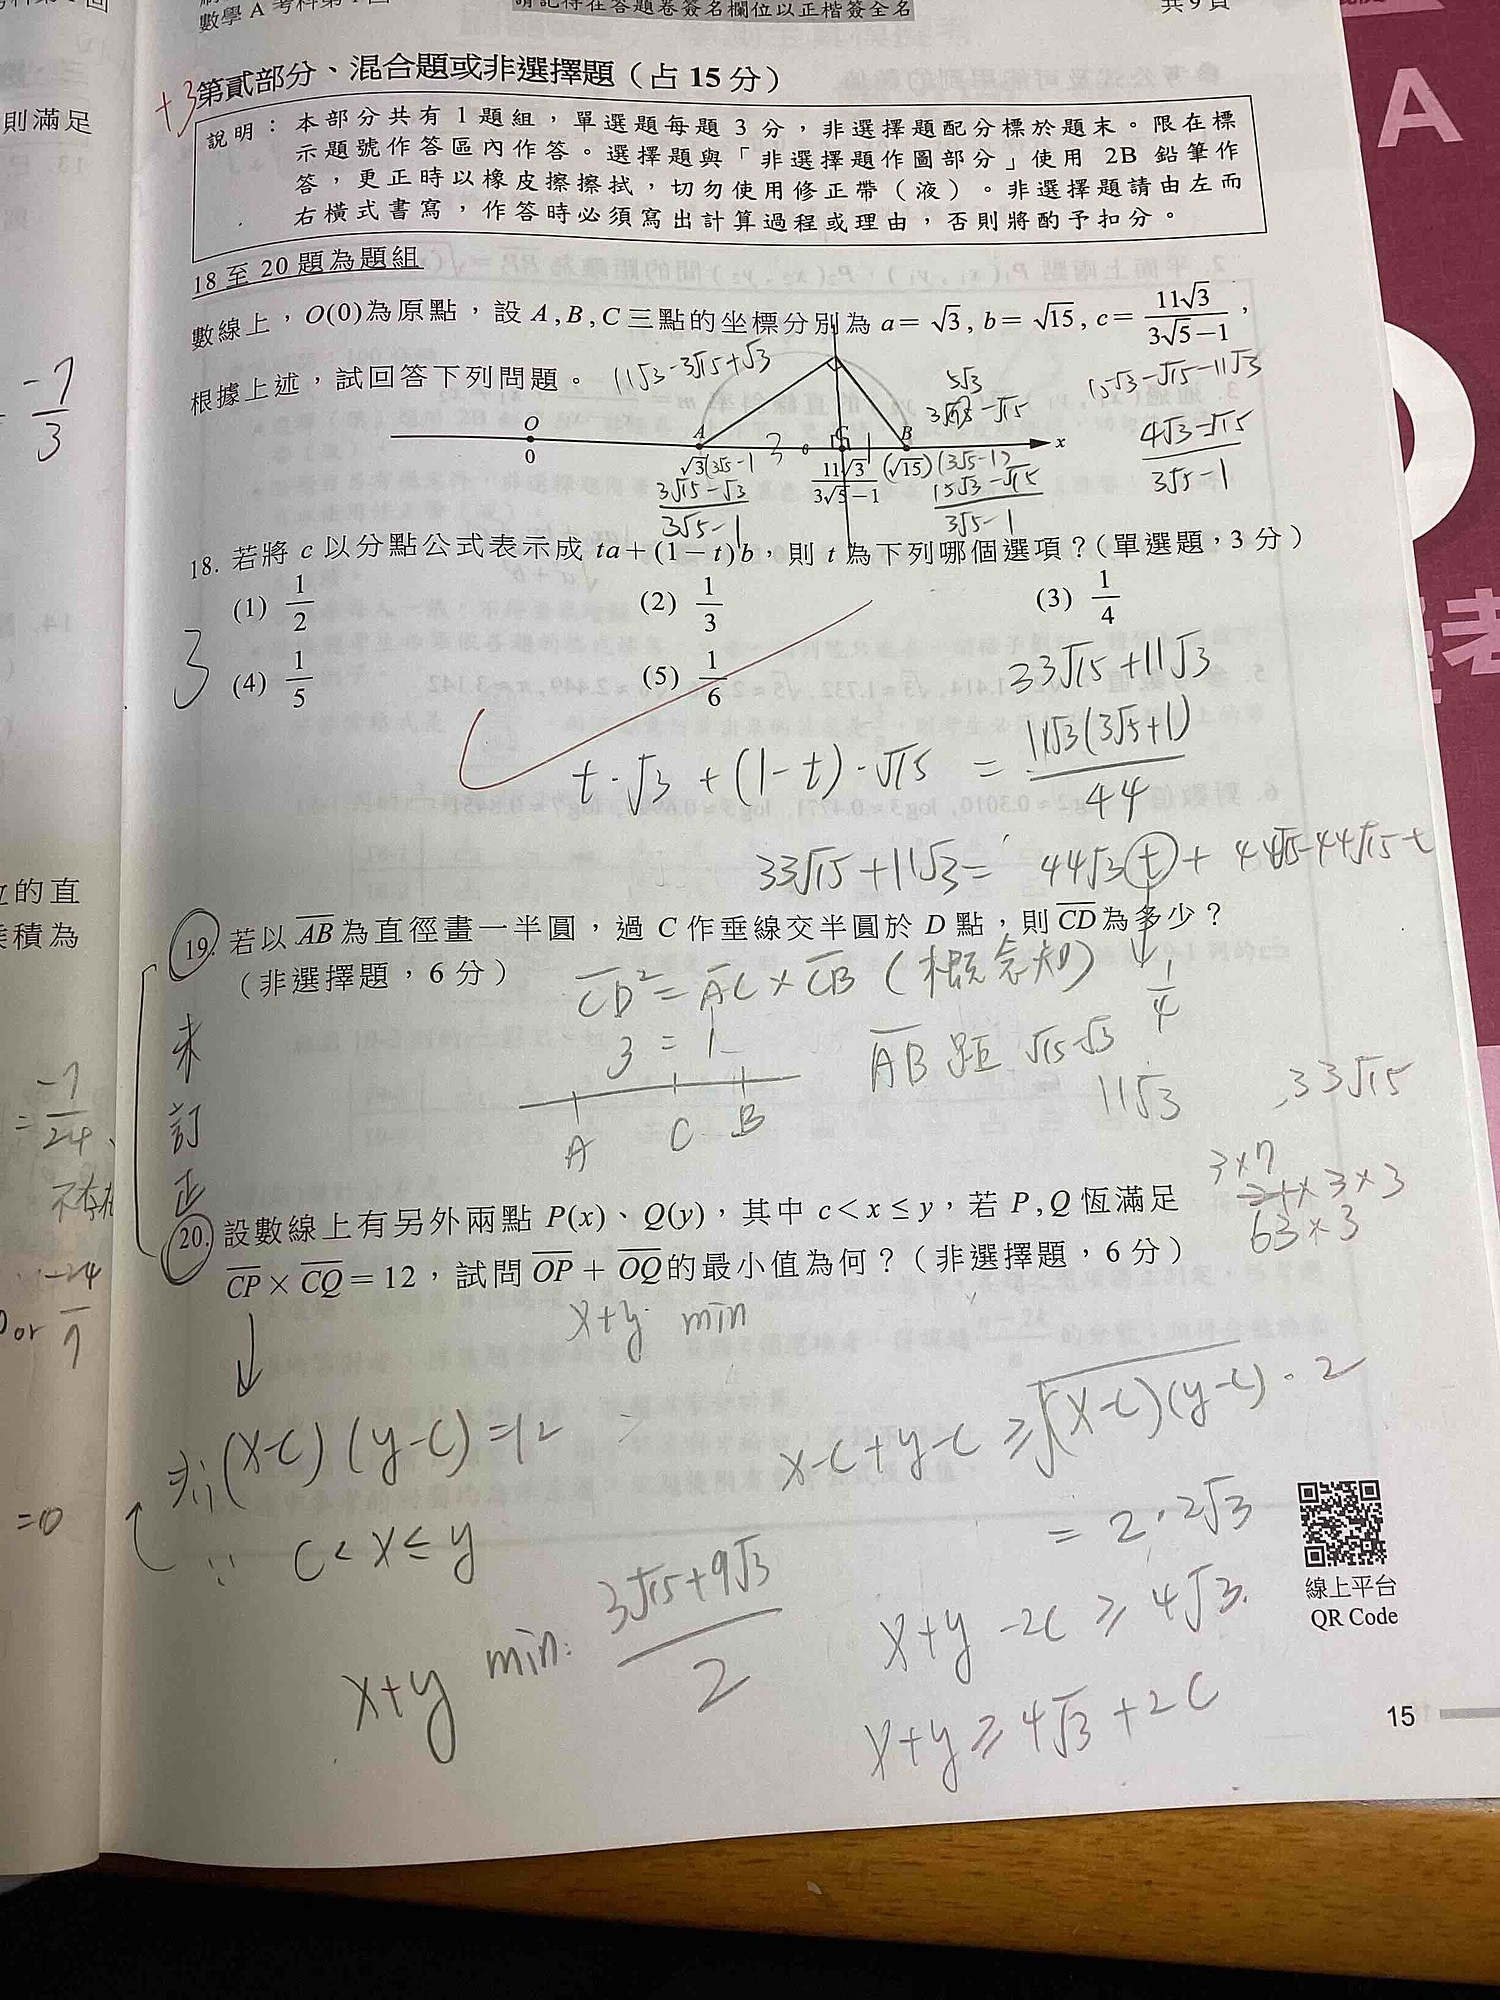 數學 A 考科第
請記得在答題卷簽名欄位以正楷簽全名
共 9 頁
+3
第貳部分、混合題或非選擇題（占 15 分）
說明：本部分共有 1 題組，單選題每題 3 分，非選擇題配分標於題末。限在標
示題號作答區內作答。選擇題與「非選擇題作圖部分」使用 2B 鉛筆作
答，更正時以橡皮擦擦拭，切勿使用修正帶（液）。非選擇題請由左而
右橫式書寫，作答時必須寫出計算過程或理由，否則將酌予扣分。
18 至 20 題為題組
數線上，O(0)為原點，設 A, B, C 三點的坐標分別為 a= √3, b= √15, c= 11√3/(3√5−1)，
根據上述，試回答下列問題。
11√3-3√15+√3
15√3-√15-11√3
(4√3-√15)/(3√5-1)
O A C B x
0 √3(3√5-1 11√3/(3√5−1) (√15)(3√5-1)
(3√15-√3)/(3√5-1)
(15√3-√15)/(3√5-1)
18. 若將 c 以分點公式表示成 ta+(1−t)b，則 t 為下列哪個選項？(單選題，3 分)
(1) 1/2 (2) 1/3 (3) 1/4
3
(4) 1/5 (5) 1/6
33√15+11√3
t·√3+(1-t)·√15 = 11√3(3√5+1)/44
33√15+11√3= 44√3t+44√15-44√15t
19. 若以 AB 為直徑畫一半圓，過 C 作垂線交半圓於 D 點，則 CD 為多少？
（非選擇題，6 分）
CD²=AC×CB (概念知)
1/4
3=1
AB距 √15-√3
11√3
33√15
A C B
未訂正
3×7
×3×3
63×3
20. 設數線上有另外兩點 P(x)、Q(y)，其中 c<x≤y，若 P, Q 恆滿足
CP×CQ=12，試問 OP+OQ的最小值為何？（非選擇題，6 分）
x+y min
(x-c)(y-c)=12
x-c+y-c≥√(x-c)(y-c)·2
∵ c<x≤y
=2·2√3
x+y-2c≥4√3
x+y min: (3√15+9√3)/2
x+y≥4√3+2c
線上平台
QR Code
15
則滿足
-7/3
位的直
乘積為
=-7/24、
不存在
or -24/7
=0
A
考